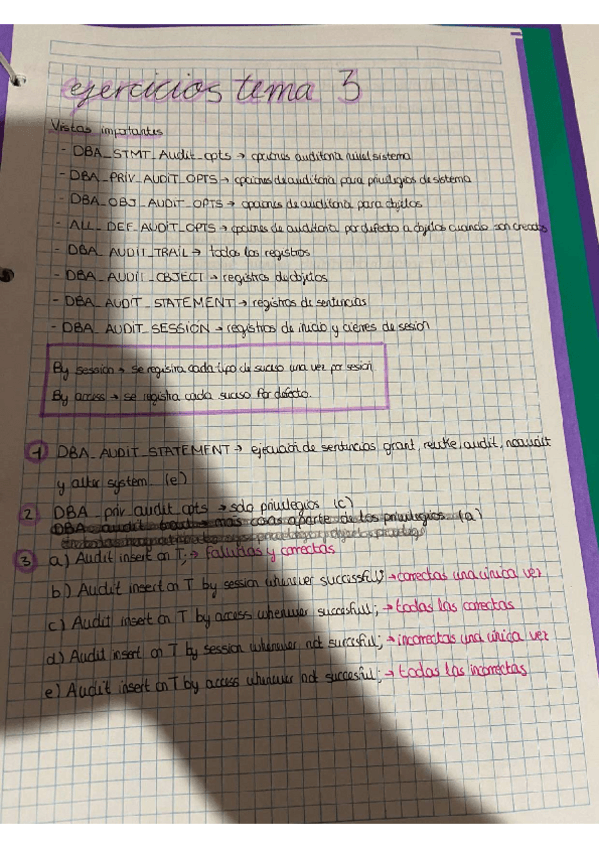 ejercicios tema 3
Vistas importantes
- DBA_STMT_Audit_opts → opciones auditoria nivel sistema
- DBA_PRIV_AUDIT_OPTS → opciones de auditoria para privilegios de sistema
- DBA_OBJ_AUDIT_OPTS → opciones de auditoria para objetos
- ALL_DEF_AUDIT_OPTS → opciones de auditoria por defecto a objetos cuando son creados
- DBA_AUDIT_TRAIL → todos los registros
- DBA_AUDIT_OBJECT → registros de objetos
- DBA_AUDIT_STATEMENT → registros de sentencias
- DBA_AUDIT_SESSION → registros de inicio y cierres de sesión
By session → se registra cada tipo de suceso una vez por sesión
By access → se registra cada suceso. Por defecto.
1 DBA_AUDIT_STATEMENT → ejecución de sentencias grant, revoke, audit, noaudit
y alter system. (e)
2 DBA_priv_audit_opts → solo privilegios (c)
DBA_audit → más cosas aparte de los privilegios (a)
3 a) Audit insert on T; → fallidas y correctas
b) Audit insert on T by session whenever successful; → correctas una única vez
c) Audit insert on T by access whenever succesful; → todas las correctas
d) Audit insert on T by session whenever not succesful; → incorrectas una única vez
e) Audit insert on T by access whenever not succesful; → todas las incorrectas